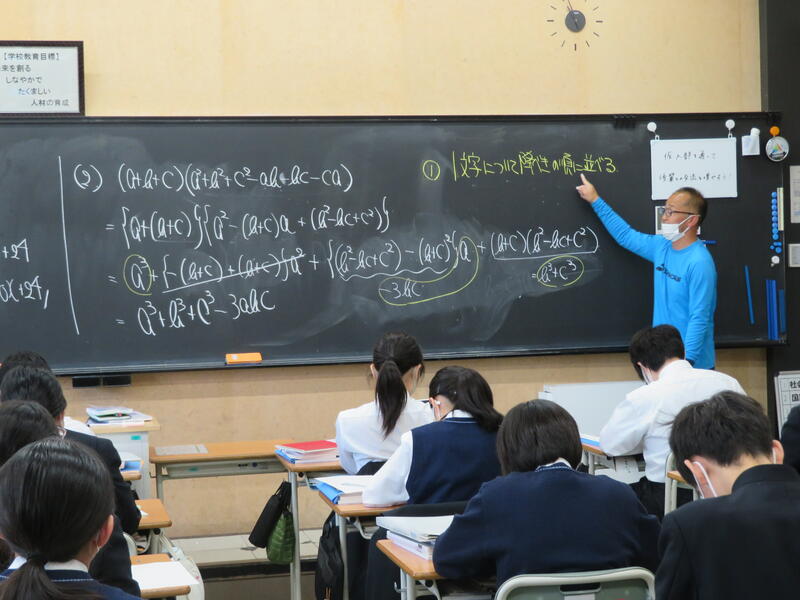 【学校教育目標】
未来を創る
しなやかで
たくましい
人材の育成
(2) (a+b+c)(a²+b²+c²-ab-bc-ca)
= {a+(b+c)}{a²-(b+c)a+(b²-bc+c²)}
= a³+{-(b+c)+(b+c)}a²+{(b²-bc+c²)-(b+c)²}a+(b+c)(b²-bc+c²)
-3bc
= b³+c³
= a³+b³+c³-3abc
① 1文字について降べきの順に並べる
+24
x+24,